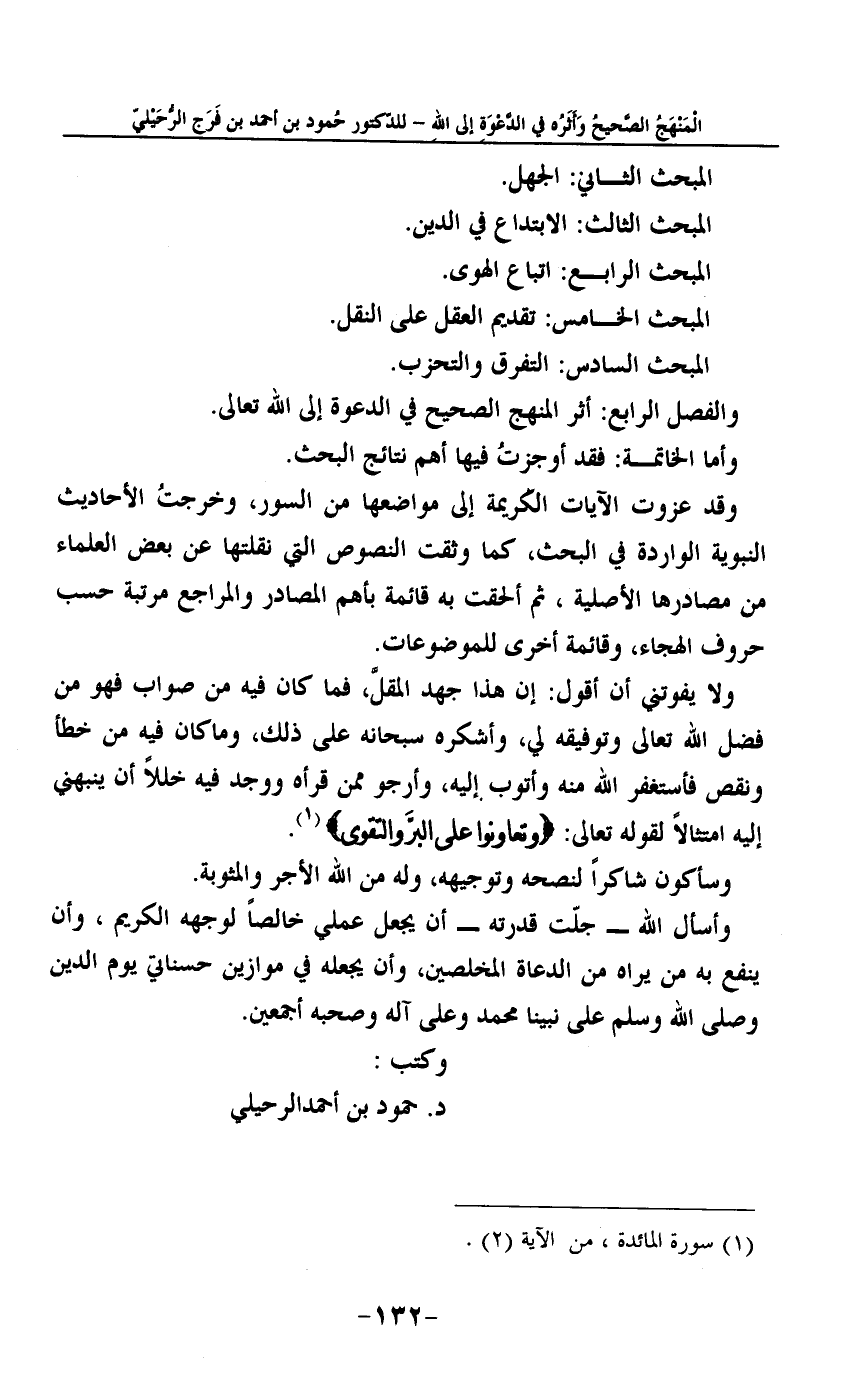 الْمَنْهَجُ الصَّحيحُ وَأَثَرُه في الدَّعْوَةِ إلى اللهِ – للدّكتور حُمود بن أحمد بن فَرَج الرُّحَيْليّ
المبحث الثـــاني: الجهل.
المبحث الثالث: الابتداع في الدين.
المبحث الرابــع: اتباع الهوى.
المبحث الخـــامس: تقديم العقل على النقل.
المبحث السادس: التفرق والتحزب.
والفصل الرابع: أثر المنهج الصحيح في الدعوة إلى الله تعالى.
وأما الخاتمـــة: فقد أوجزتُ فيها أهم نتائج البحث.
وقد عزوت الآيات الكريمة إلى مواضعها من السور، وخرجتُ الأحاديث
النبوية الواردة في البحث، كما وثقت النصوص التي نقلتها عن بعض العلماء
من مصادرها الأصلية ، ثم ألحقت به قائمة بأهم المصادر والمراجع مرتبة حسب
حروف الهجاء، وقائمة أخرى للموضوعات.
ولا يفوتني أن أقول: إن هذا جهد المقلَّ، فما كان فيه من صواب فهو من
فضل الله تعالى وتوفيقه لي، وأشكره سبحانه على ذلك، وماكان فيه من خطأ
ونقص فأستغفر الله منه وأتوب إليه، وأرجو ممن قرأه ووجد فيه خللاً أن ينبهني
إليه امتثالاً لقوله تعالى: ﴿وتعاونوا على البرَّ والتقوى﴾(١).
وسأكون شاكراً لنصحه وتوجيهه، وله من الله الأجر والمثوبة.
وأسأل الله ــ جلّت قدرته ــ أن يجعل عملي خالصاً لوجهه الكريم ، وأن
ينفع به من يراه من الدعاة المخلصين، وأن يجعله في موازين حسناتيّ يوم الدين
وصلى الله وسلم على نبينا محمد وعلى آله وصحبه أجمعين.
وكتب :
د. حمود بن أحمدالرحيلي
(١) سورة المائدة ، من الآية (٢) .
-١٣٢-